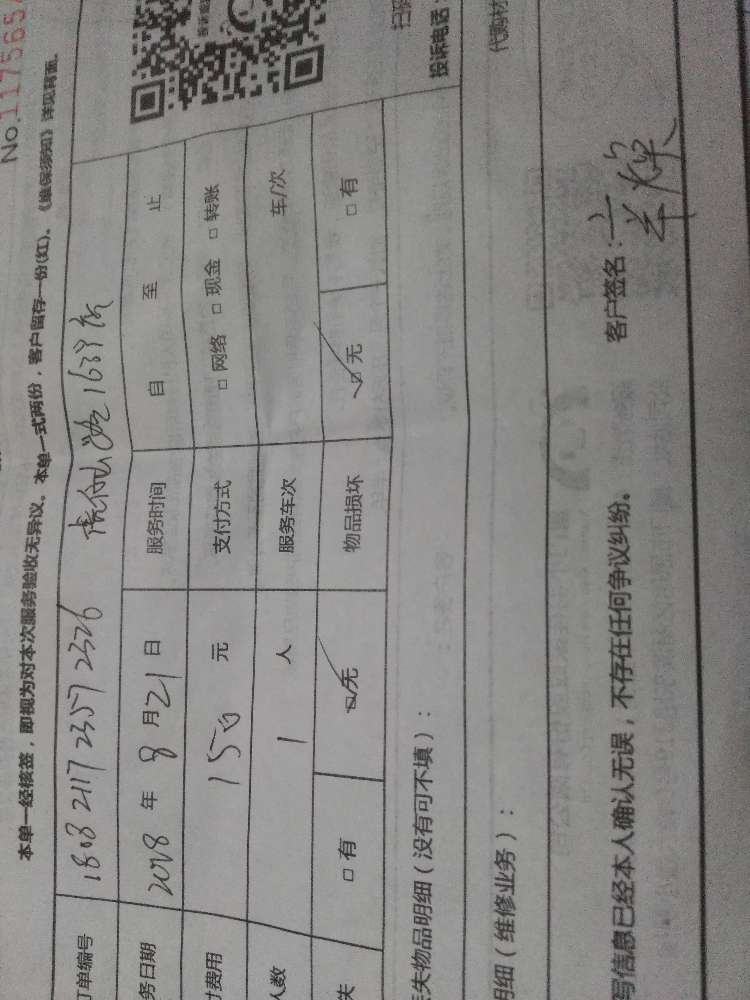 No.1175657
扫
投诉电话：
代购材
本单一经核签，即视为对本次服务验收无异议。本单一式两份，客户留存一份(红)。《维保须知》详见背面。
订单编号 1808 2117 2357 2326 1639弄
务日期 2018 年 8 月 21 日 服务时间 自 至 止
付费用 150 元 支付方式 □ 网络 □ 现金 □ 转账
人数 1 人 服务车次 车/次
失 □ 有 ☑ 无 物品损坏 ☑ 无 □ 有
丢失物品明细（没有可不填）：
明细（维修业务）：
写信息已经本人确认无误，不存在任何争议纠纷。 客户签名：